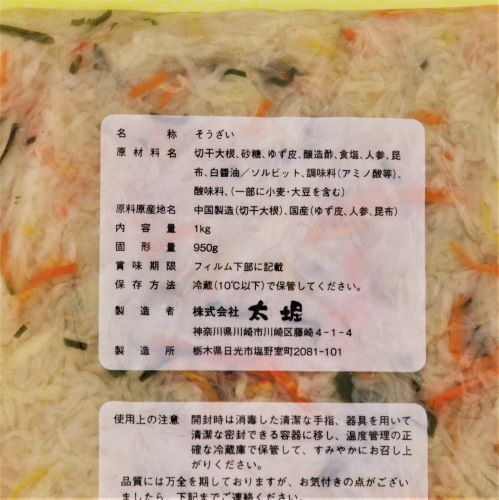 名称 そうざい
原材料名 切干大根、砂糖、ゆず皮、醸造酢、食塩、人参、昆
布、白醤油／ソルビット、調味料（アミノ酸等）、
酸味料、（一部に小麦・大豆を含む）
原料原産地名 中国製造（切干大根）、国産（ゆず皮、人参、昆布）
内容量 1kg
固形量 950g
賞味期限 フィルム下部に記載
保存方法 冷蔵（10℃以下）で保管してください。
製造者 株式会社 太堀
神奈川県川崎市川崎区藤崎4-1-4
製造所 栃木県日光市塩野室町2081-101
使用上の注意 開封時は消毒した清潔な手指、器具を用いて
清潔な密封できる容器に移し、温度管理の正
確な冷蔵庫で保管して、すみやかにお召し上
がりください。
品質には万全を期しておりますが、お気付きの点がござい
ましたら、下記までご連絡ください。